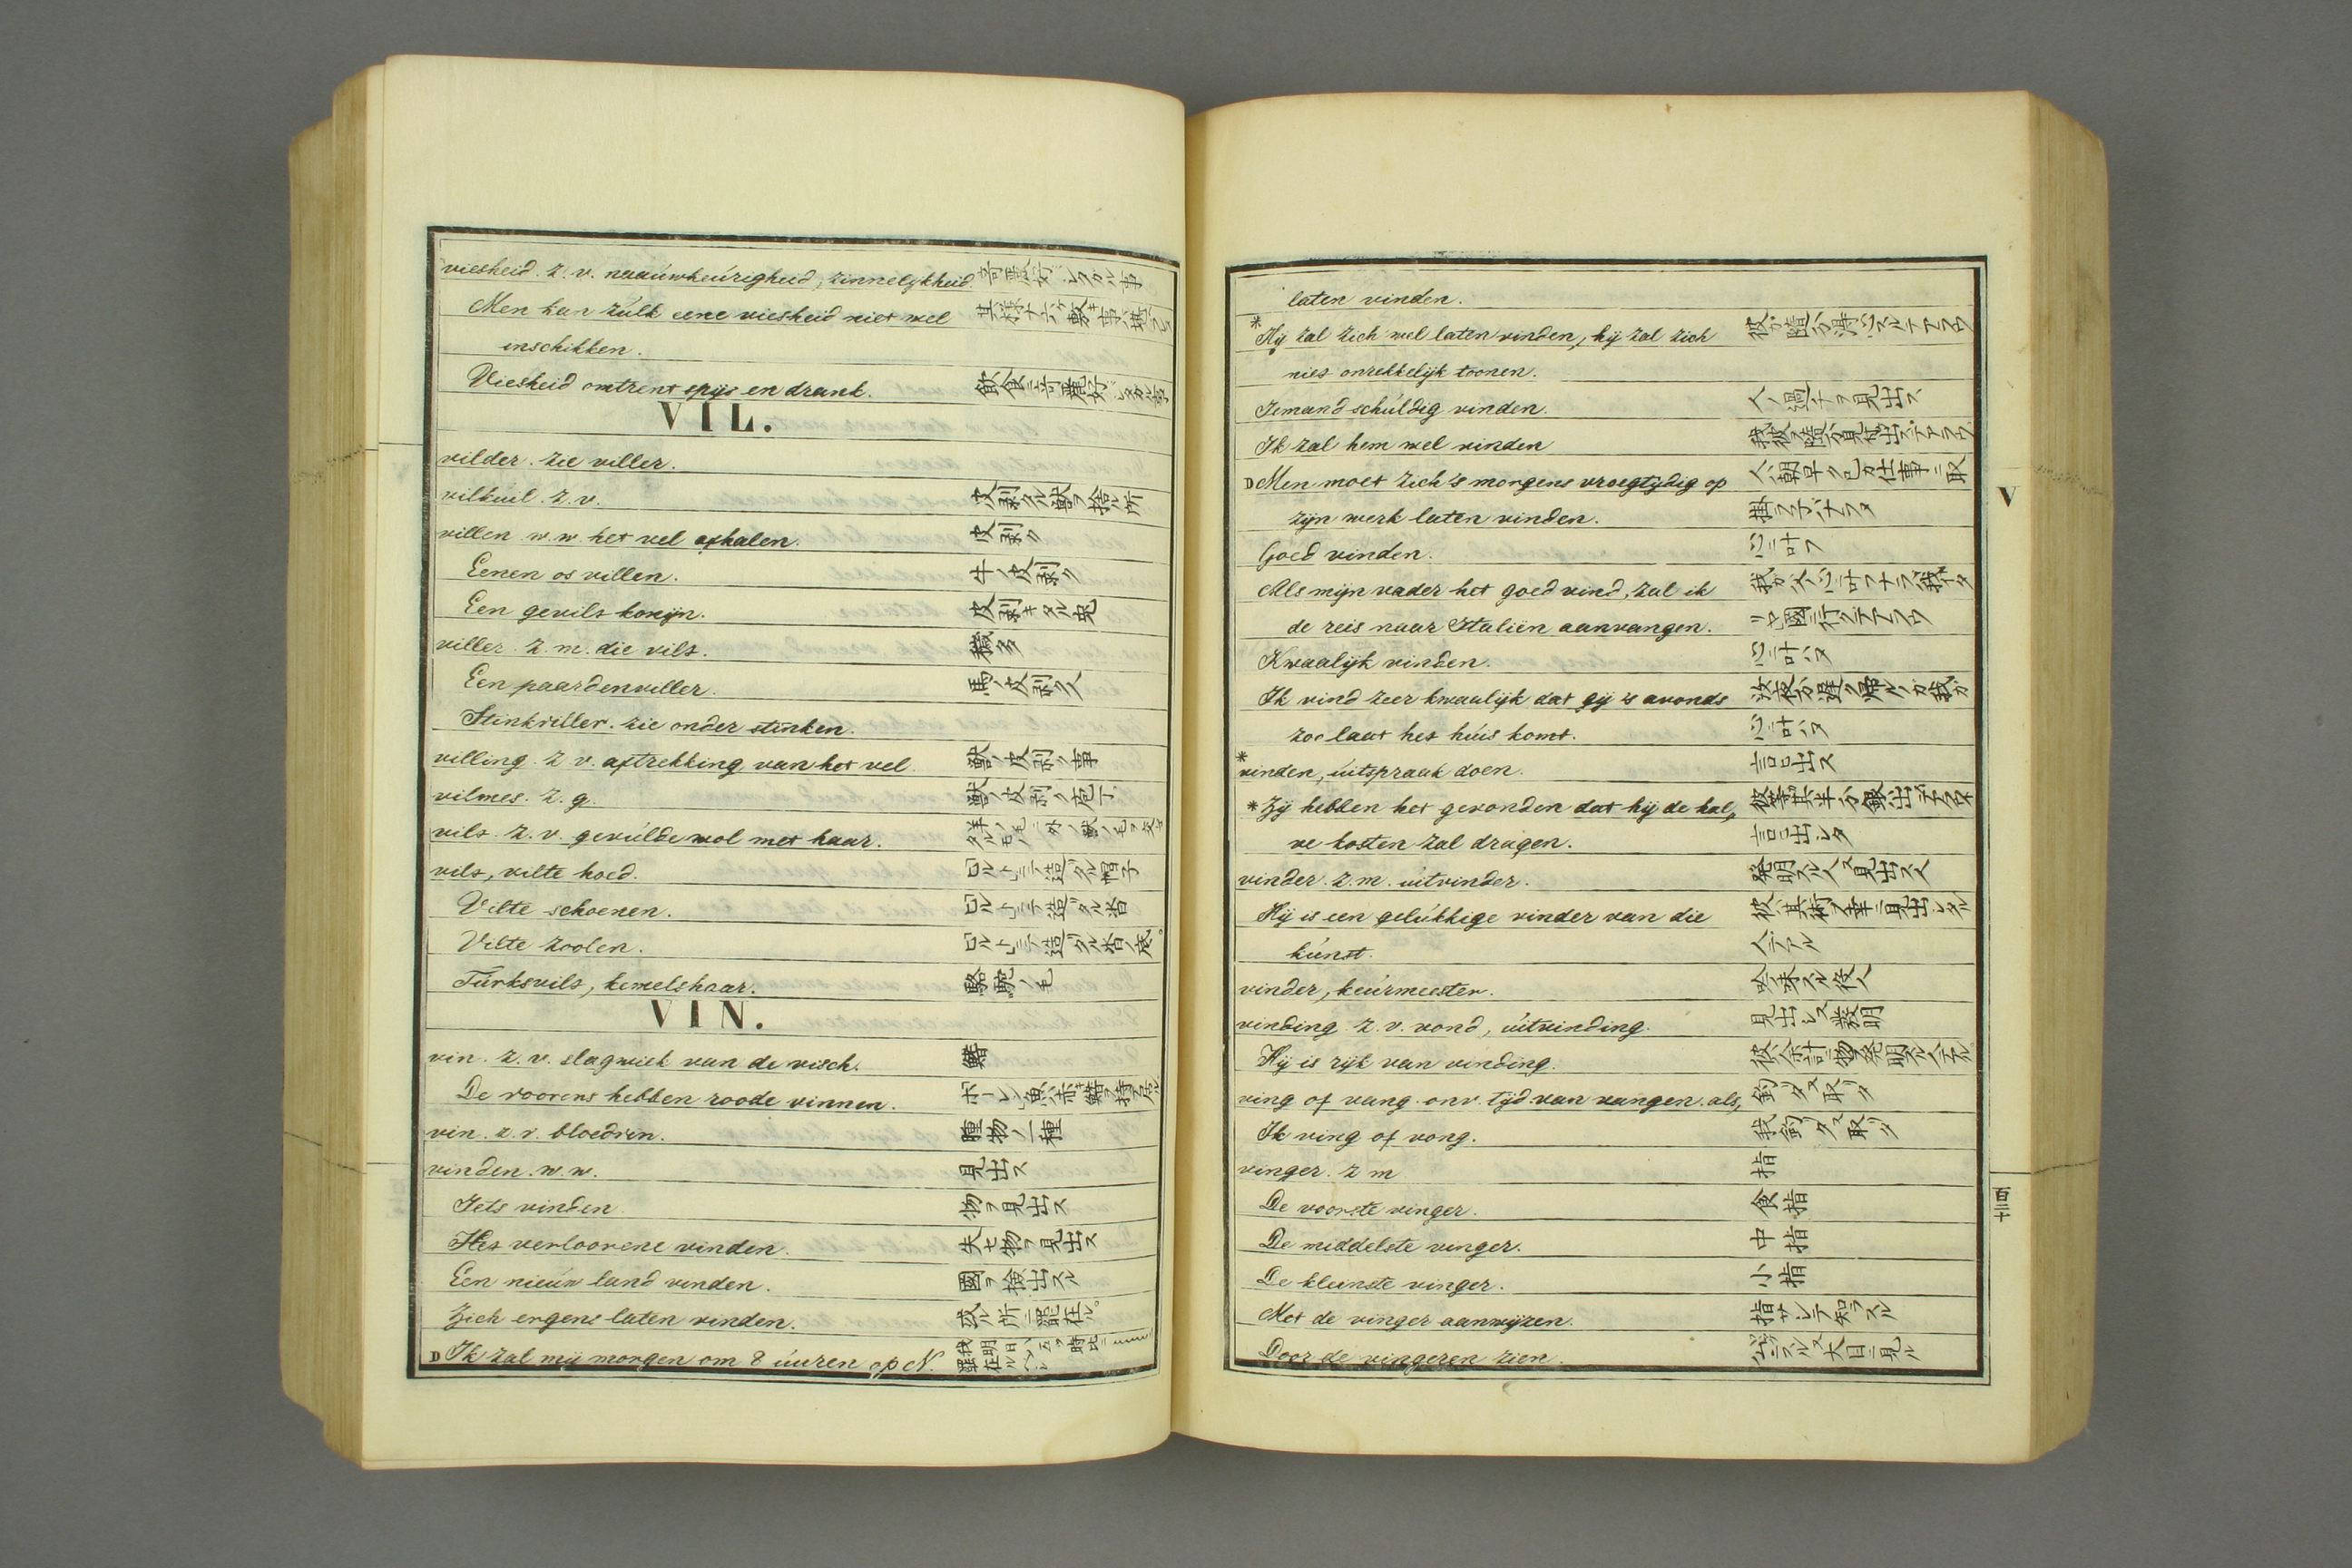 viesheid. z. v. naauwkeúrigheid, zinnelykheid.
Men kan zúlk eene viesheid niet wel
inschikken.
Viesheid omtrent spijs en drank.
VIL.
vilder. zie viller.
vilkuil. z. v. 皮剥タル獣ヲ捨ル所
villen. w. w. het vel afhalen. 皮剥ク
Eenen os villen. 牛ノ皮剥ク
Een gevilt konijn. 皮剥キタル兎
viller. z. m. die vilt. 穢多
Een paardenviller. 馬ノ皮剥ク人
Stinkviller. zie onder stinken.
villing. z. v. aftrekking van het vel. 獣ノ皮剥ク事
vilmes. z. g. 獣ノ皮剥ク庖丁
vilt. z. v. gevúlde wol met haar.
vilt, vilte hoed. 造リタル帽子
Vilte schoenen. 造リタル沓
Vilte zoolen. 造リタル沓ノ底
Túrksvilt, kemelshaar. 駱駝ノ毛
VIN.
vin. z. v. slagwiek van de visch. 鰭
De voorens hebben roode vinnen.
vin. z. v. bloedvin. 腫物ノ一種
vinden. w. w. 見出ス
Iets vinden. 物ヲ見出ス
Het verloorene vinden. 失セ物ヲ見出ス
Een nieúw land vinden. 國ヲ撿出スル
Zich ergens laten vinden. 或ル所ニ罷在ル
D Ik zal mij morgen om 8 úuren op N.
laten vinden.
* Hij zal zich wel laten vinden, hij zal zich
niet onrekkelijk toonen.
Iemand schúldig vinden. 人ノ過チヲ見出ス
Ik zal hem wel vinden
D Men moet zich 's morgens vroegtijdig op 人ハ朝早ク己カ仕事ニ取
zijn werk laten vinden. 掛ラ子ハナラヌ
Goed vinden. 心ニ叶フ
Als mijn vader het goed vind, zal ik
de reis naar Italien aanvangen.
Kwaalijk vinden. 心ニ叶ハヌ
Ik vind zeer kwaalijk dat gij 's avonds
zoo laat het húis komt. 心ニ叶ハヌ
* vinden, úitspraak doen. 言出ス
* Zij hebben het gevonden dat hij de hal,,
ve kosten zal dragen. 言出シタ
vinder. z. m. uitvinder.
Hij is een gelúkkige vinder van die
kúnst. 人テアル
vinder, keúrmeester. 吟味スル役人
vinding. z. v. vond, úitvinding.
Hij is rijk van vinding.
ving of vang. onv. tijd. van vangen. als,
Ik ving of vong.
vinger. z m 指
De voorste vinger. 食指
De middelste vinger. 中指
De kleinste vinger. 小指
Met de vinger aanwijzen. 指サシテ知ラスル
Door de vingeren zien. 大目ニ見ル
V
百三十